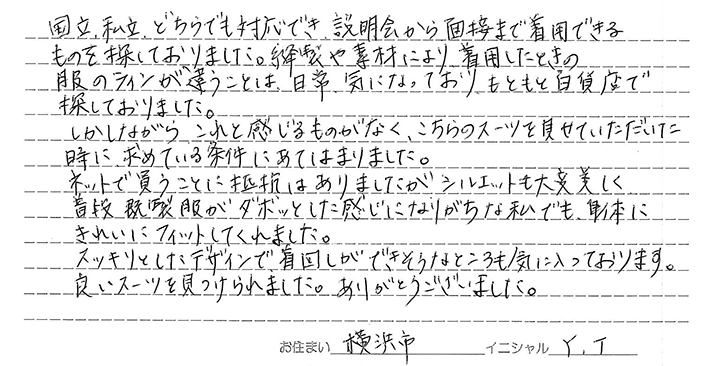 国立、私立、どちらでも対応でき、説明会から面接まで着用できる
ものを探しておりました。縫製や素材により、着用したときの
服のラインが違うことは、日常、気になっており、もともと百貨店で
探しておりました。
しかしながら、これと感じるものがなく、こちらのスーツを見せていただいた
時に、求めている条件にあてはまりました。
ネットで買うことに抵抗はありましたが、シルエットも大変美しく
普段、既製服がダボッとした感じになりがちな私でも、身体に
きれいにフィットしてくれました。
スッキリとしたデザインで着回しができそうなところも気に入っております。
良いスーツを見つけられました。ありがとうございました。
お住まい 横浜市 イニシャル Y.T